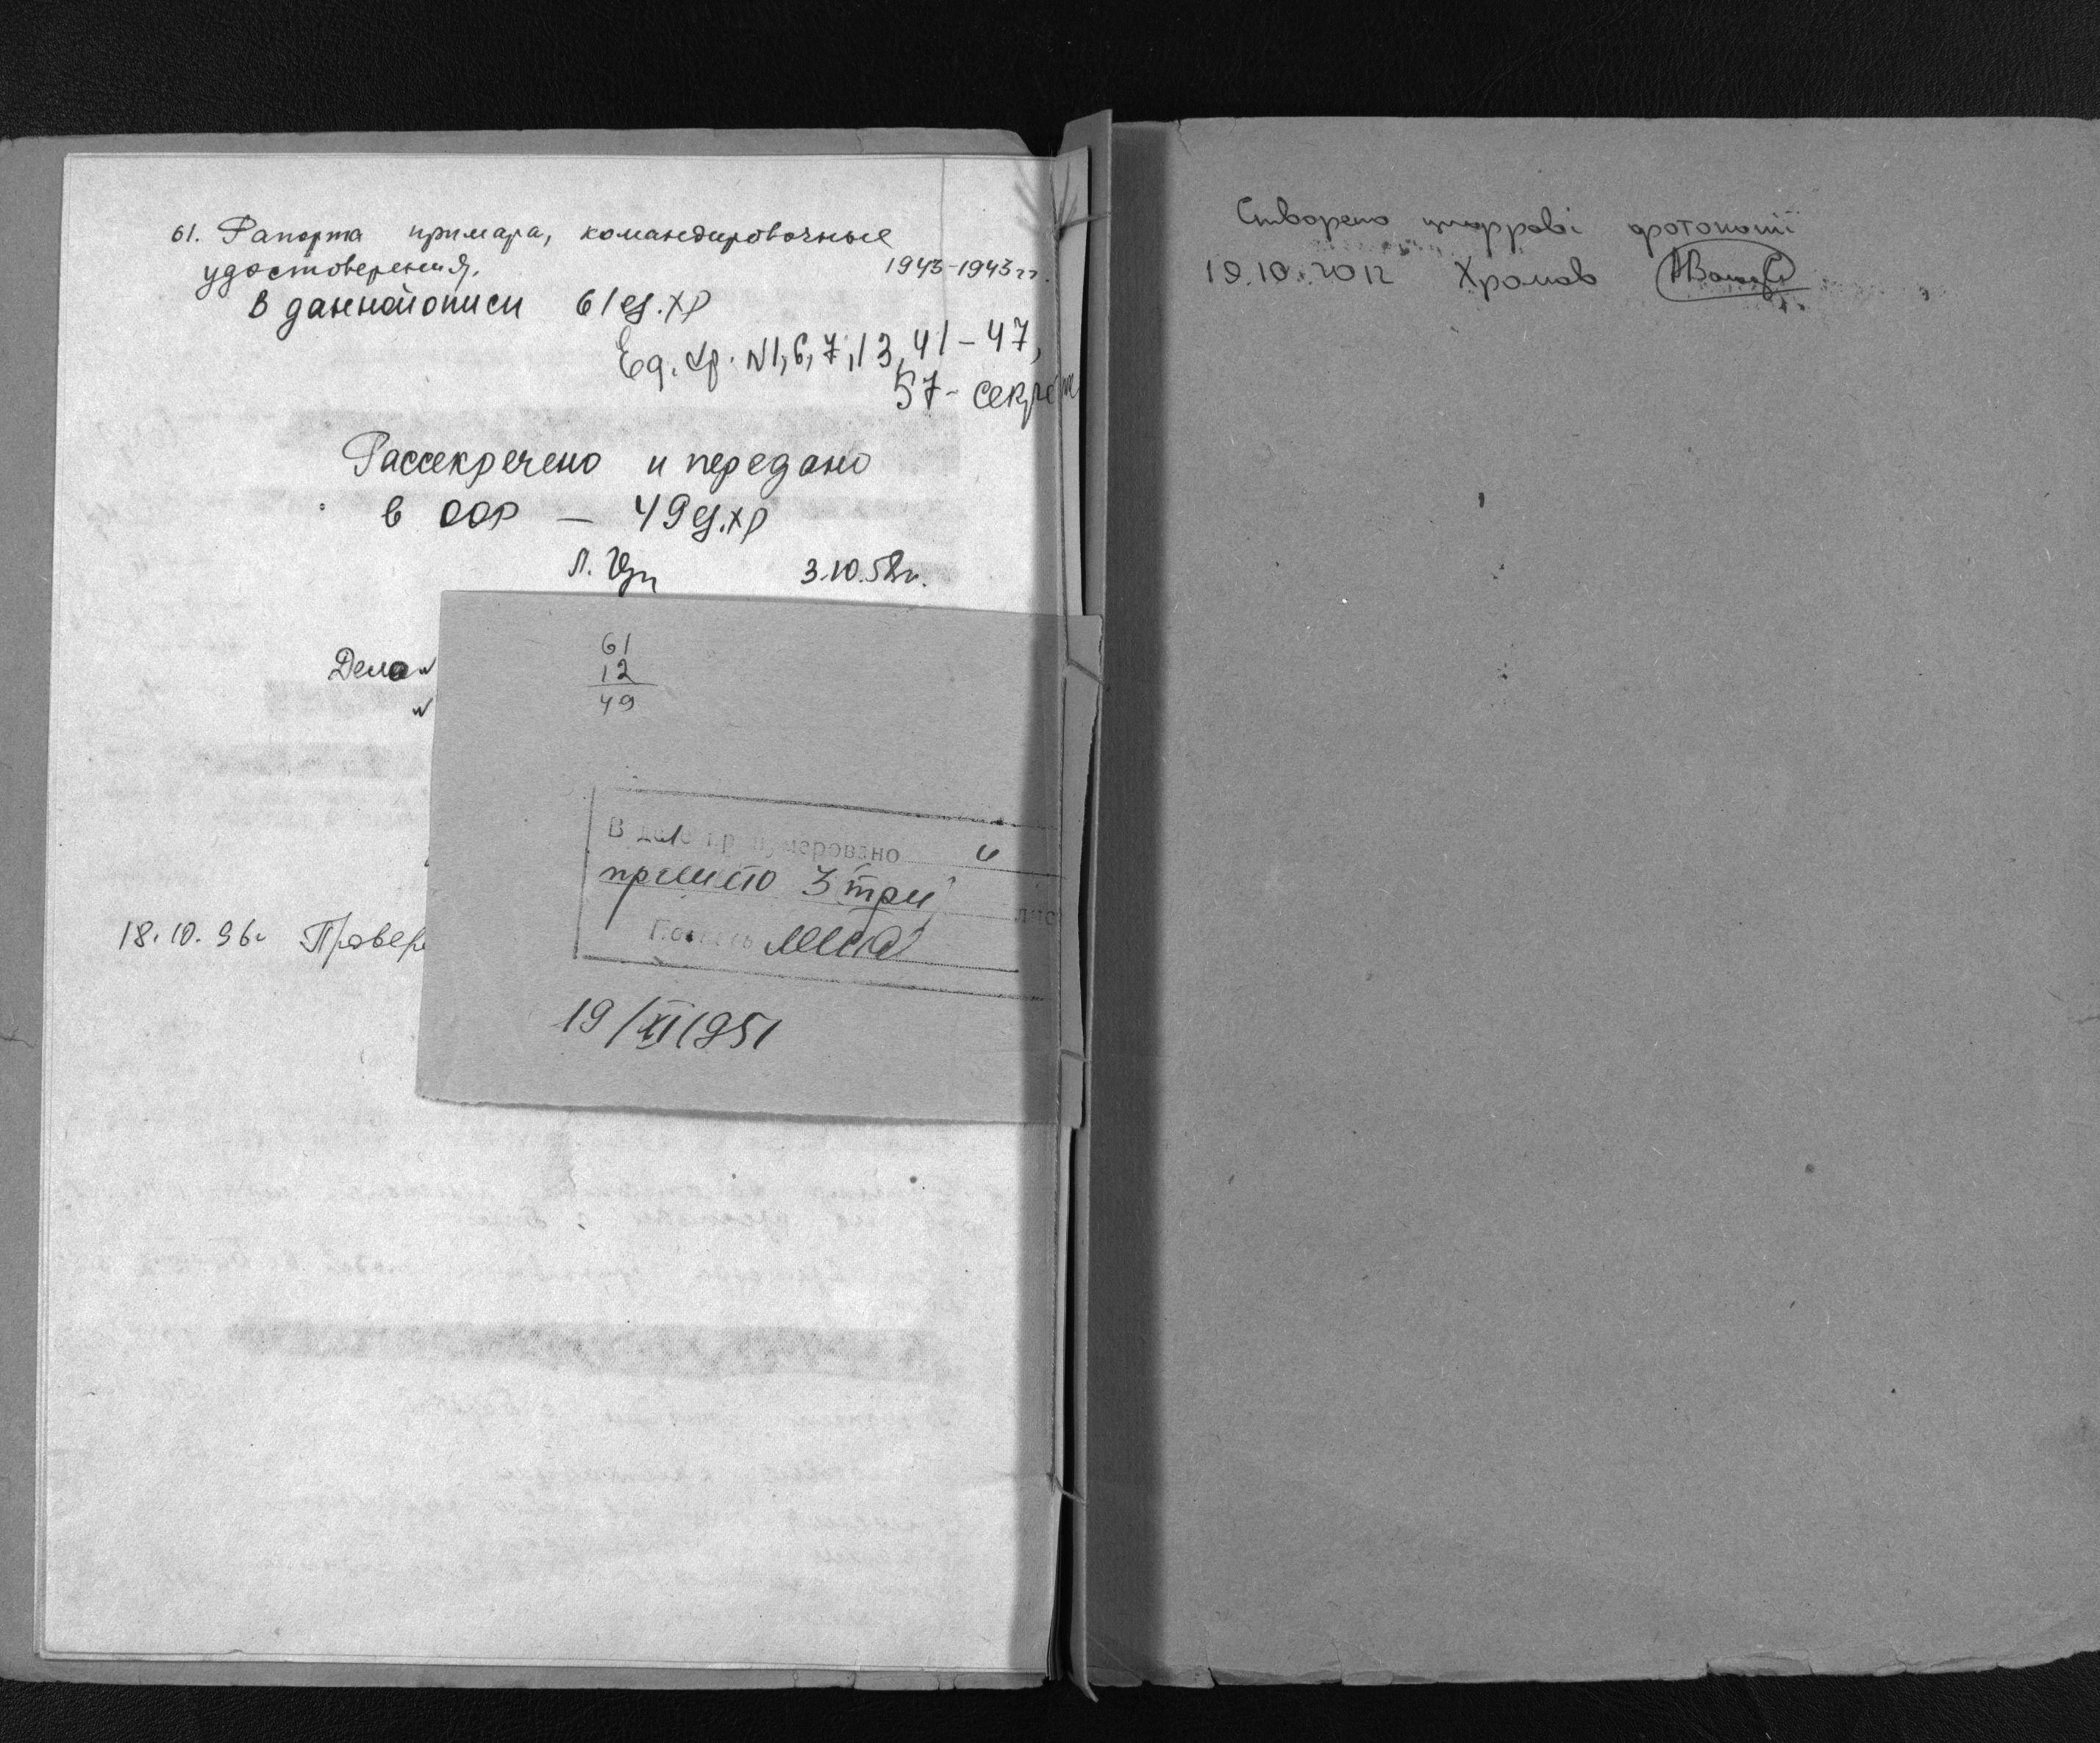 61. Рапорта примара, командировочные
удостоверения. 1943-1943 гг.
В данной описи 61 ед. хр
Ед. хр. N1, 6, 7, 13, 41-47,
57- секрет
Рассекречено и передано
в ООР — 49 ед. хр
Л. 3.10.58г.
Дело
61
12
49
В деле пронумеровано и
прошито 3 /три/ лис
Подпись
18.10.96г Провере
19/XI 1951
Створено цифрові фотокопії
19.10.2012 Храмов